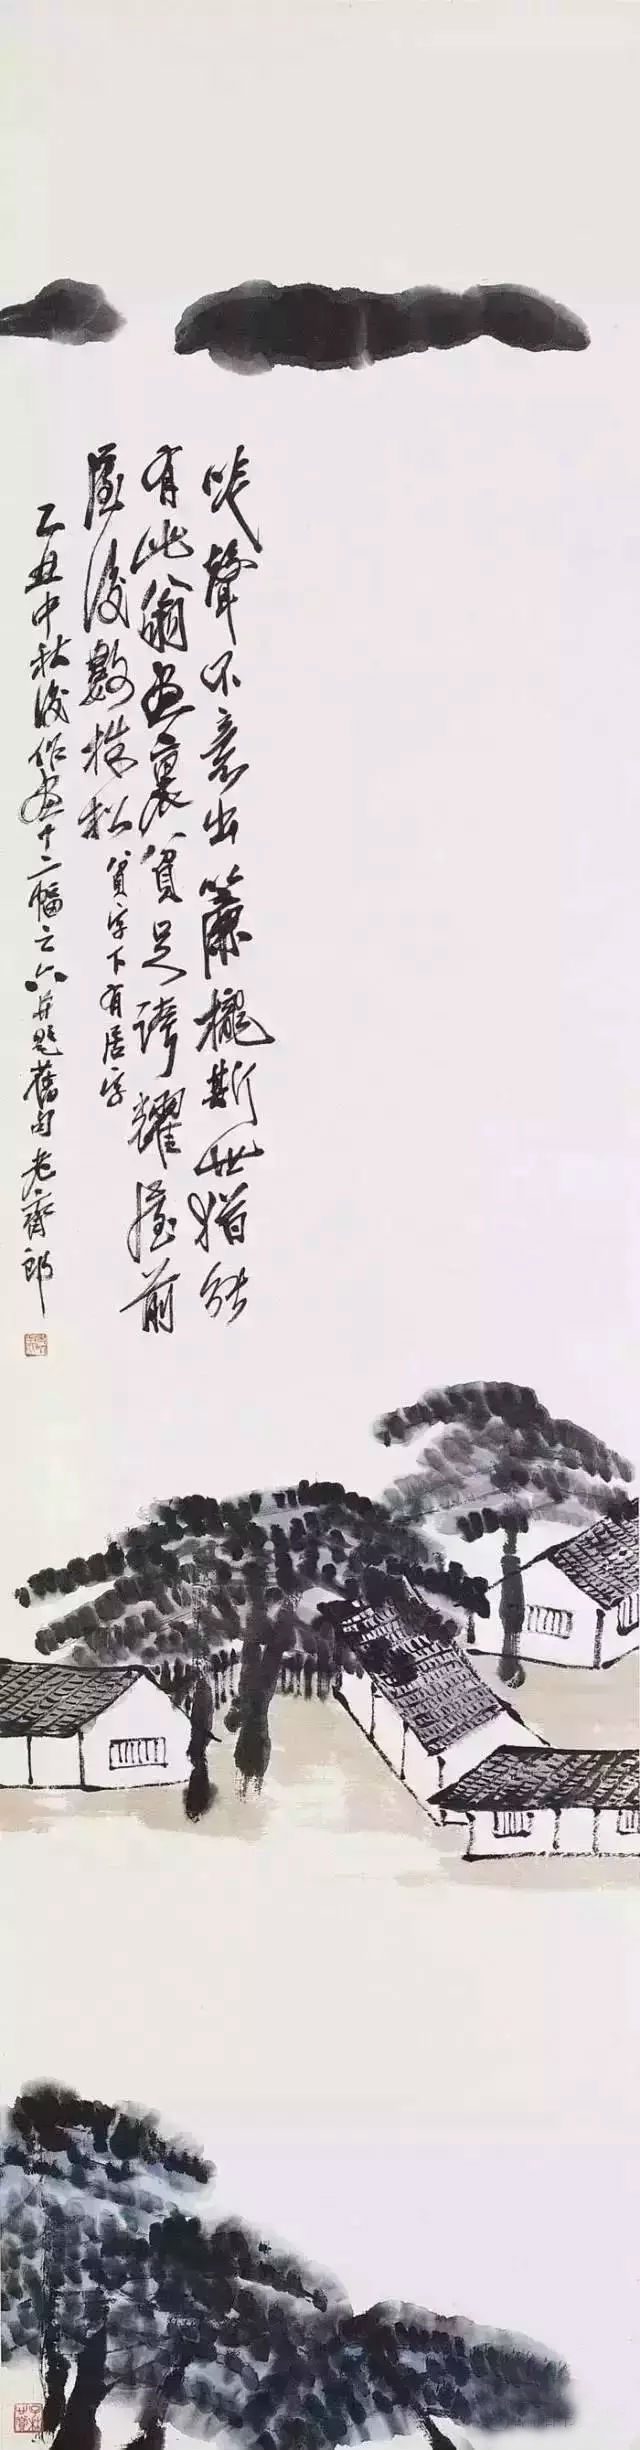 咲聲不意出簾櫳斯世猶能
有此翁畫裏貧足誇耀屋前
屋後數株松
貧字下有居字
乙丑中秋後作畫十二幅之六并題舊句老齊郎